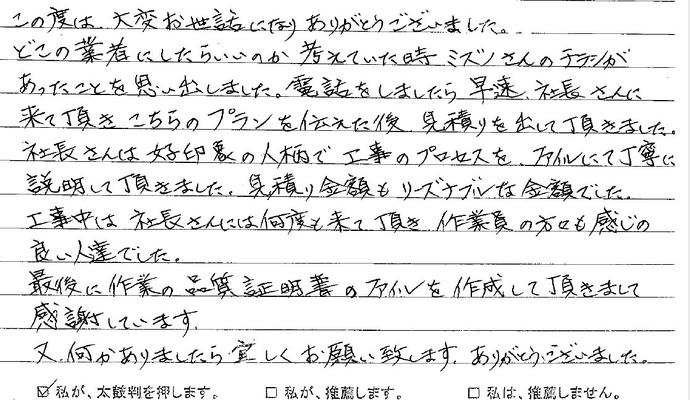 この度は、大変お世話になりありがとうございました。
どこの業者にしたらいいのか 考えていた時 ミズノさんのチラシが
あったことを思い出しました。電話をしましたら 早速、社長さんに
来て頂き こちらのプランを伝えた後、見積りを出して頂きました。
社長さんは好印象の人柄で 工事のプロセスを、ファイルにて丁寧に
説明して頂きました。見積り金額も リーズナブルな金額でした。
工事中は 社長さんには何度も来て頂き 作業員の方々も感じの
良い人達でした。
最後に作業の品質証明書のファイルを作成して頂きまして
感謝しています。
又、何かありましたら 宜しくお願い致します。ありがとうございました。
☑ 私が、太鼓判を押します。 □ 私が、推薦します。 □ 私は、推薦しません。